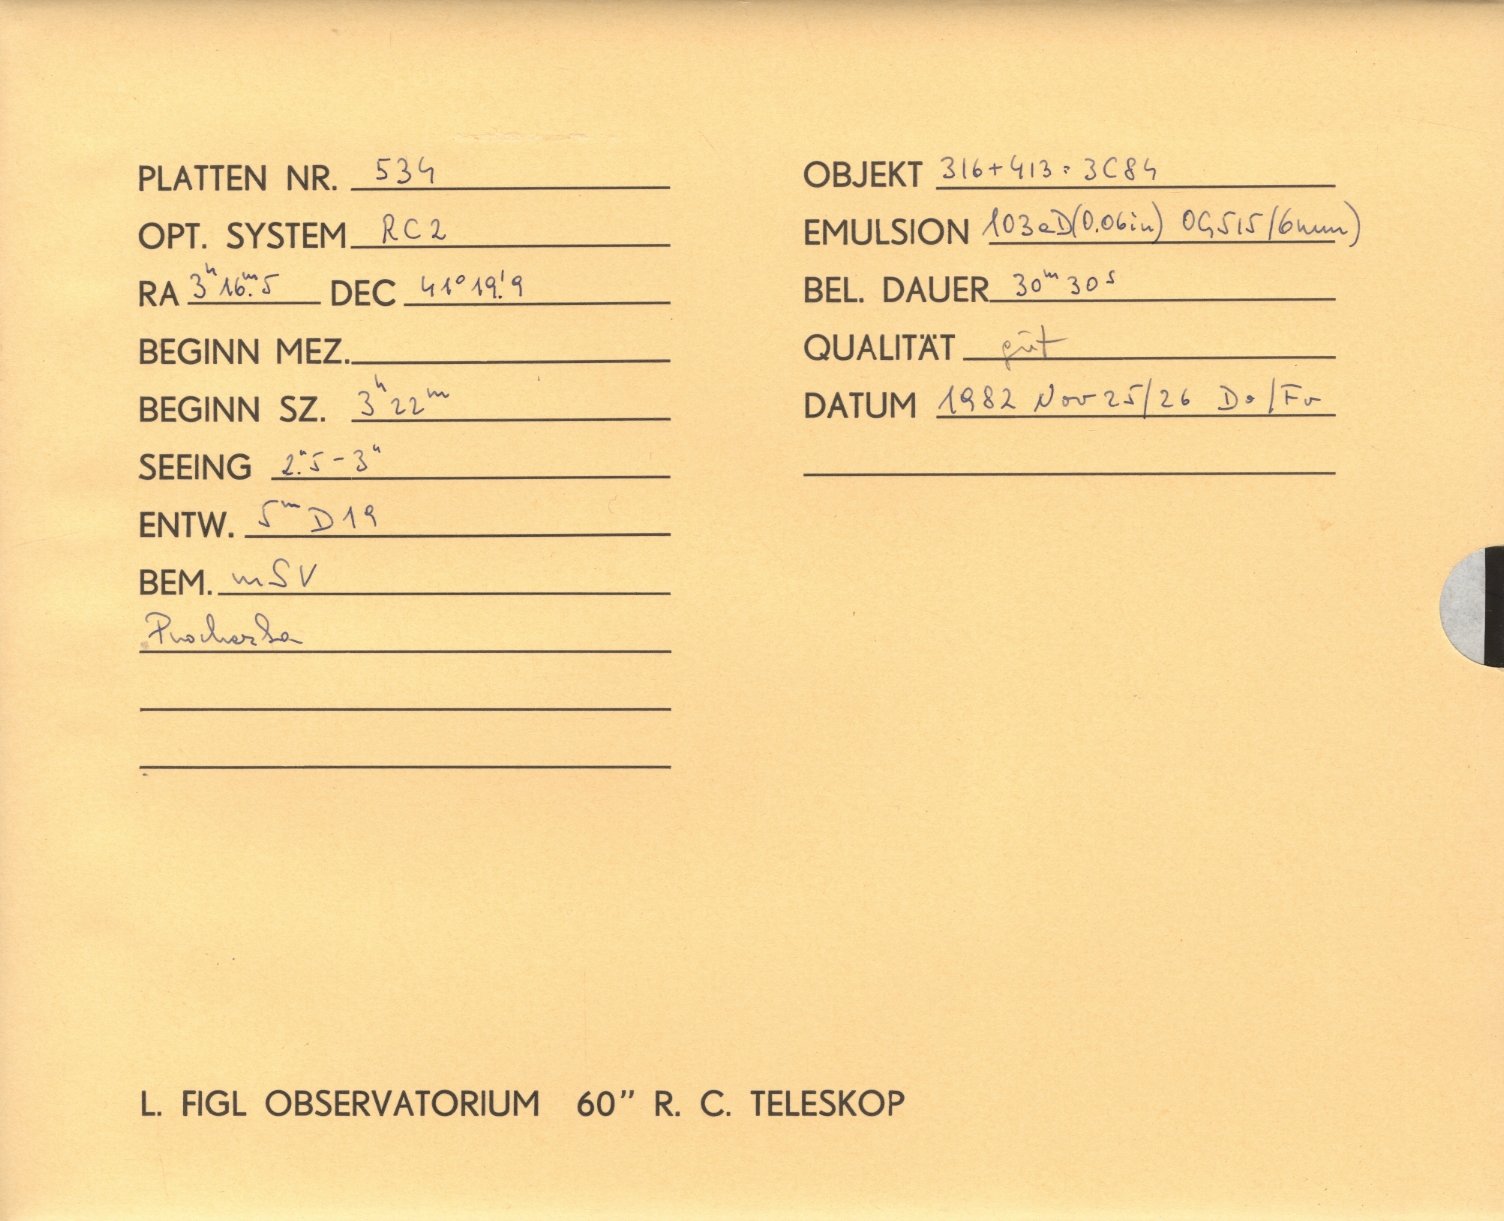 PLATTEN NR. 534
OPT. SYSTEM RC2
RA 3ʰ16ᵐ.5 DEC 41°19'.9
BEGINN MEZ.
BEGINN SZ. 3ʰ22ᵐ
SEEING 2".5-3"
ENTW. 5ᵐ D19
BEM. mSV
OBJEKT 316+413 = 3C84
EMULSION 103aD(0.06in) OG515/6mm)
BEL. DAUER 30ᵐ30ˢ
QUALITÄT gut
DATUM 1982 Nov 25/26 Do/Fr
L. FIGL OBSERVATORIUM 60" R. C. TELESKOP